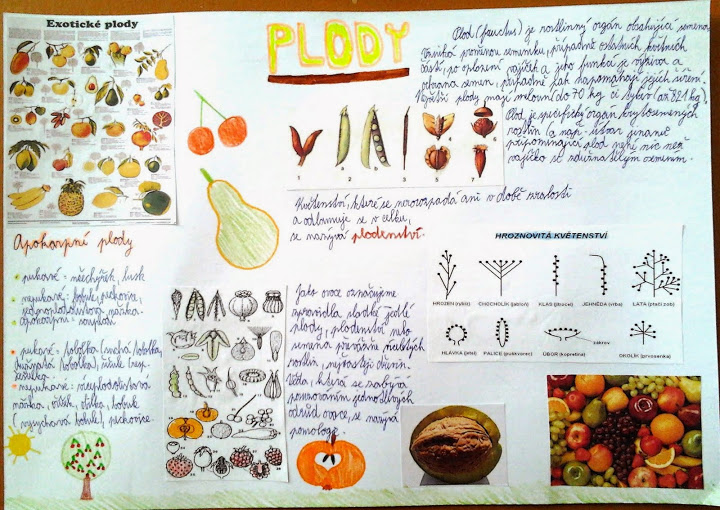 Exotické plody
PLODY
Plod (fructus) je rostlinný orgán obsahující semena.
Vzniká proměnou semeníku, případně ostatních květních
částí, po oplození vajíček a jeho funkcí je výživa a
ochrana semen, případně jak napomáhají jejich šíření.
plody mají melouny (do 70 kg či dýně (až 821 kg).
Plod je specifický orgán krytosemenných
rostlin (a např. útvar jinanu
připomínající plod není nic než
vajíčko se zdužnatělým osemením.
1
2
3
4
5
6
7
Květenství, které se nerozpadá ani v době zralosti
a odlamuje se v celku,
se nazývá plodenství.
Apokarpní plody
pukavé: měchýřek, lusk
nepukavé: bobule, peckovice,
jednoplodolistová nažka
apokarpní: souplodí
pukavé: tobolka (suchá tobolka,
tobolka), šešule
nepukavé: víceplodolistová
nažka, oříšek, obilka, bobule
vysychavá bobule), peckovice.
Jako ovoce označujeme
zpravidla sladké jedlé
plody, plodenství nebo
semena převážně víceletých
rostlin, nejčastěji dřevin.
Věda, která se zabývá
poznáváním jednotlivých
odrůd ovoce, se nazývá
pomologie.
HROZNOVITÁ KVĚTENSTVÍ
HROZEN (rybíz) CHOCHOLÍK (jabloň) KLAS (jitrocel) JEHNĚDA (vrba) LATA (ptačí zob)
zákrov
HLÁVKA (jetel) PALICE (puškvorec) ÚBOR (kopretina) OKOLÍK (prvosenka)